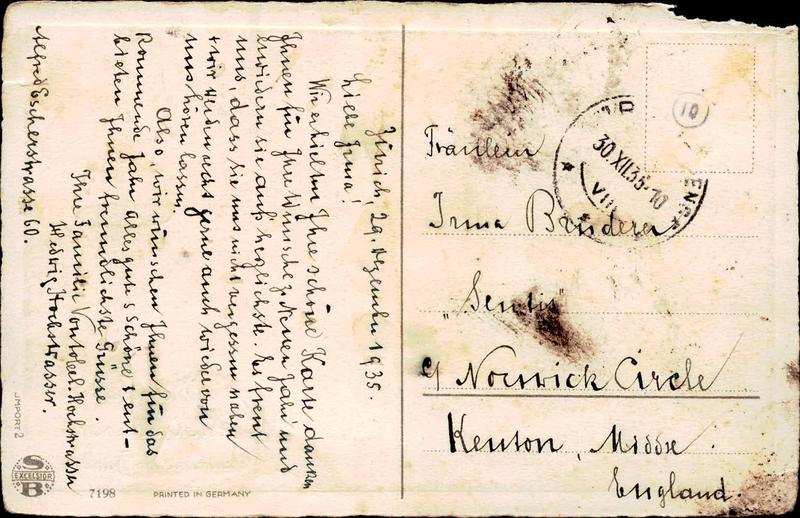 Zürich, 29. Dezember 1935.
Liebe Irma!
Wir erhielten Ihre schöne Karte danken
Ihnen für Ihre Wünsche z. Neuen Jahr und
erwiedern sie aufs herzlichste. Es freut
uns, dass sie uns nicht vergessen haben
+ wir werden recht gerne auch wieder von
uns hören lassen.
Also, wir wünschen Ihnen für das
kommende Jahr alles gute & Schöne & ent-
bieten Ihnen freundlichste Grüsse.
Ihre Familie Vontobel-Hochstrasser
Hedwig Hochstrasser.
Alfred Escherstrasse 60.
Fräulein
Irma Bruderer
„Sentis"
9 Norwick Circle
Kenton, Middx.
England.
30 XII.35-10
VIII
10
IMPORT 2
S EXCELSIOR B
7198
PRINTED IN GERMANY